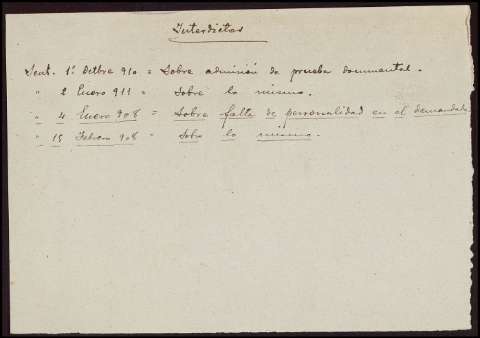 Interdictos
Sent. 1º Octbre 910 = Sobre admisión de prueba documental.
" 2 Enero 911 " Sobre lo mismo.
" 4 Enero 908 = Sobre falta de personalidad en el demandado
" 15 Febrero 908 " Sobre lo mismo.